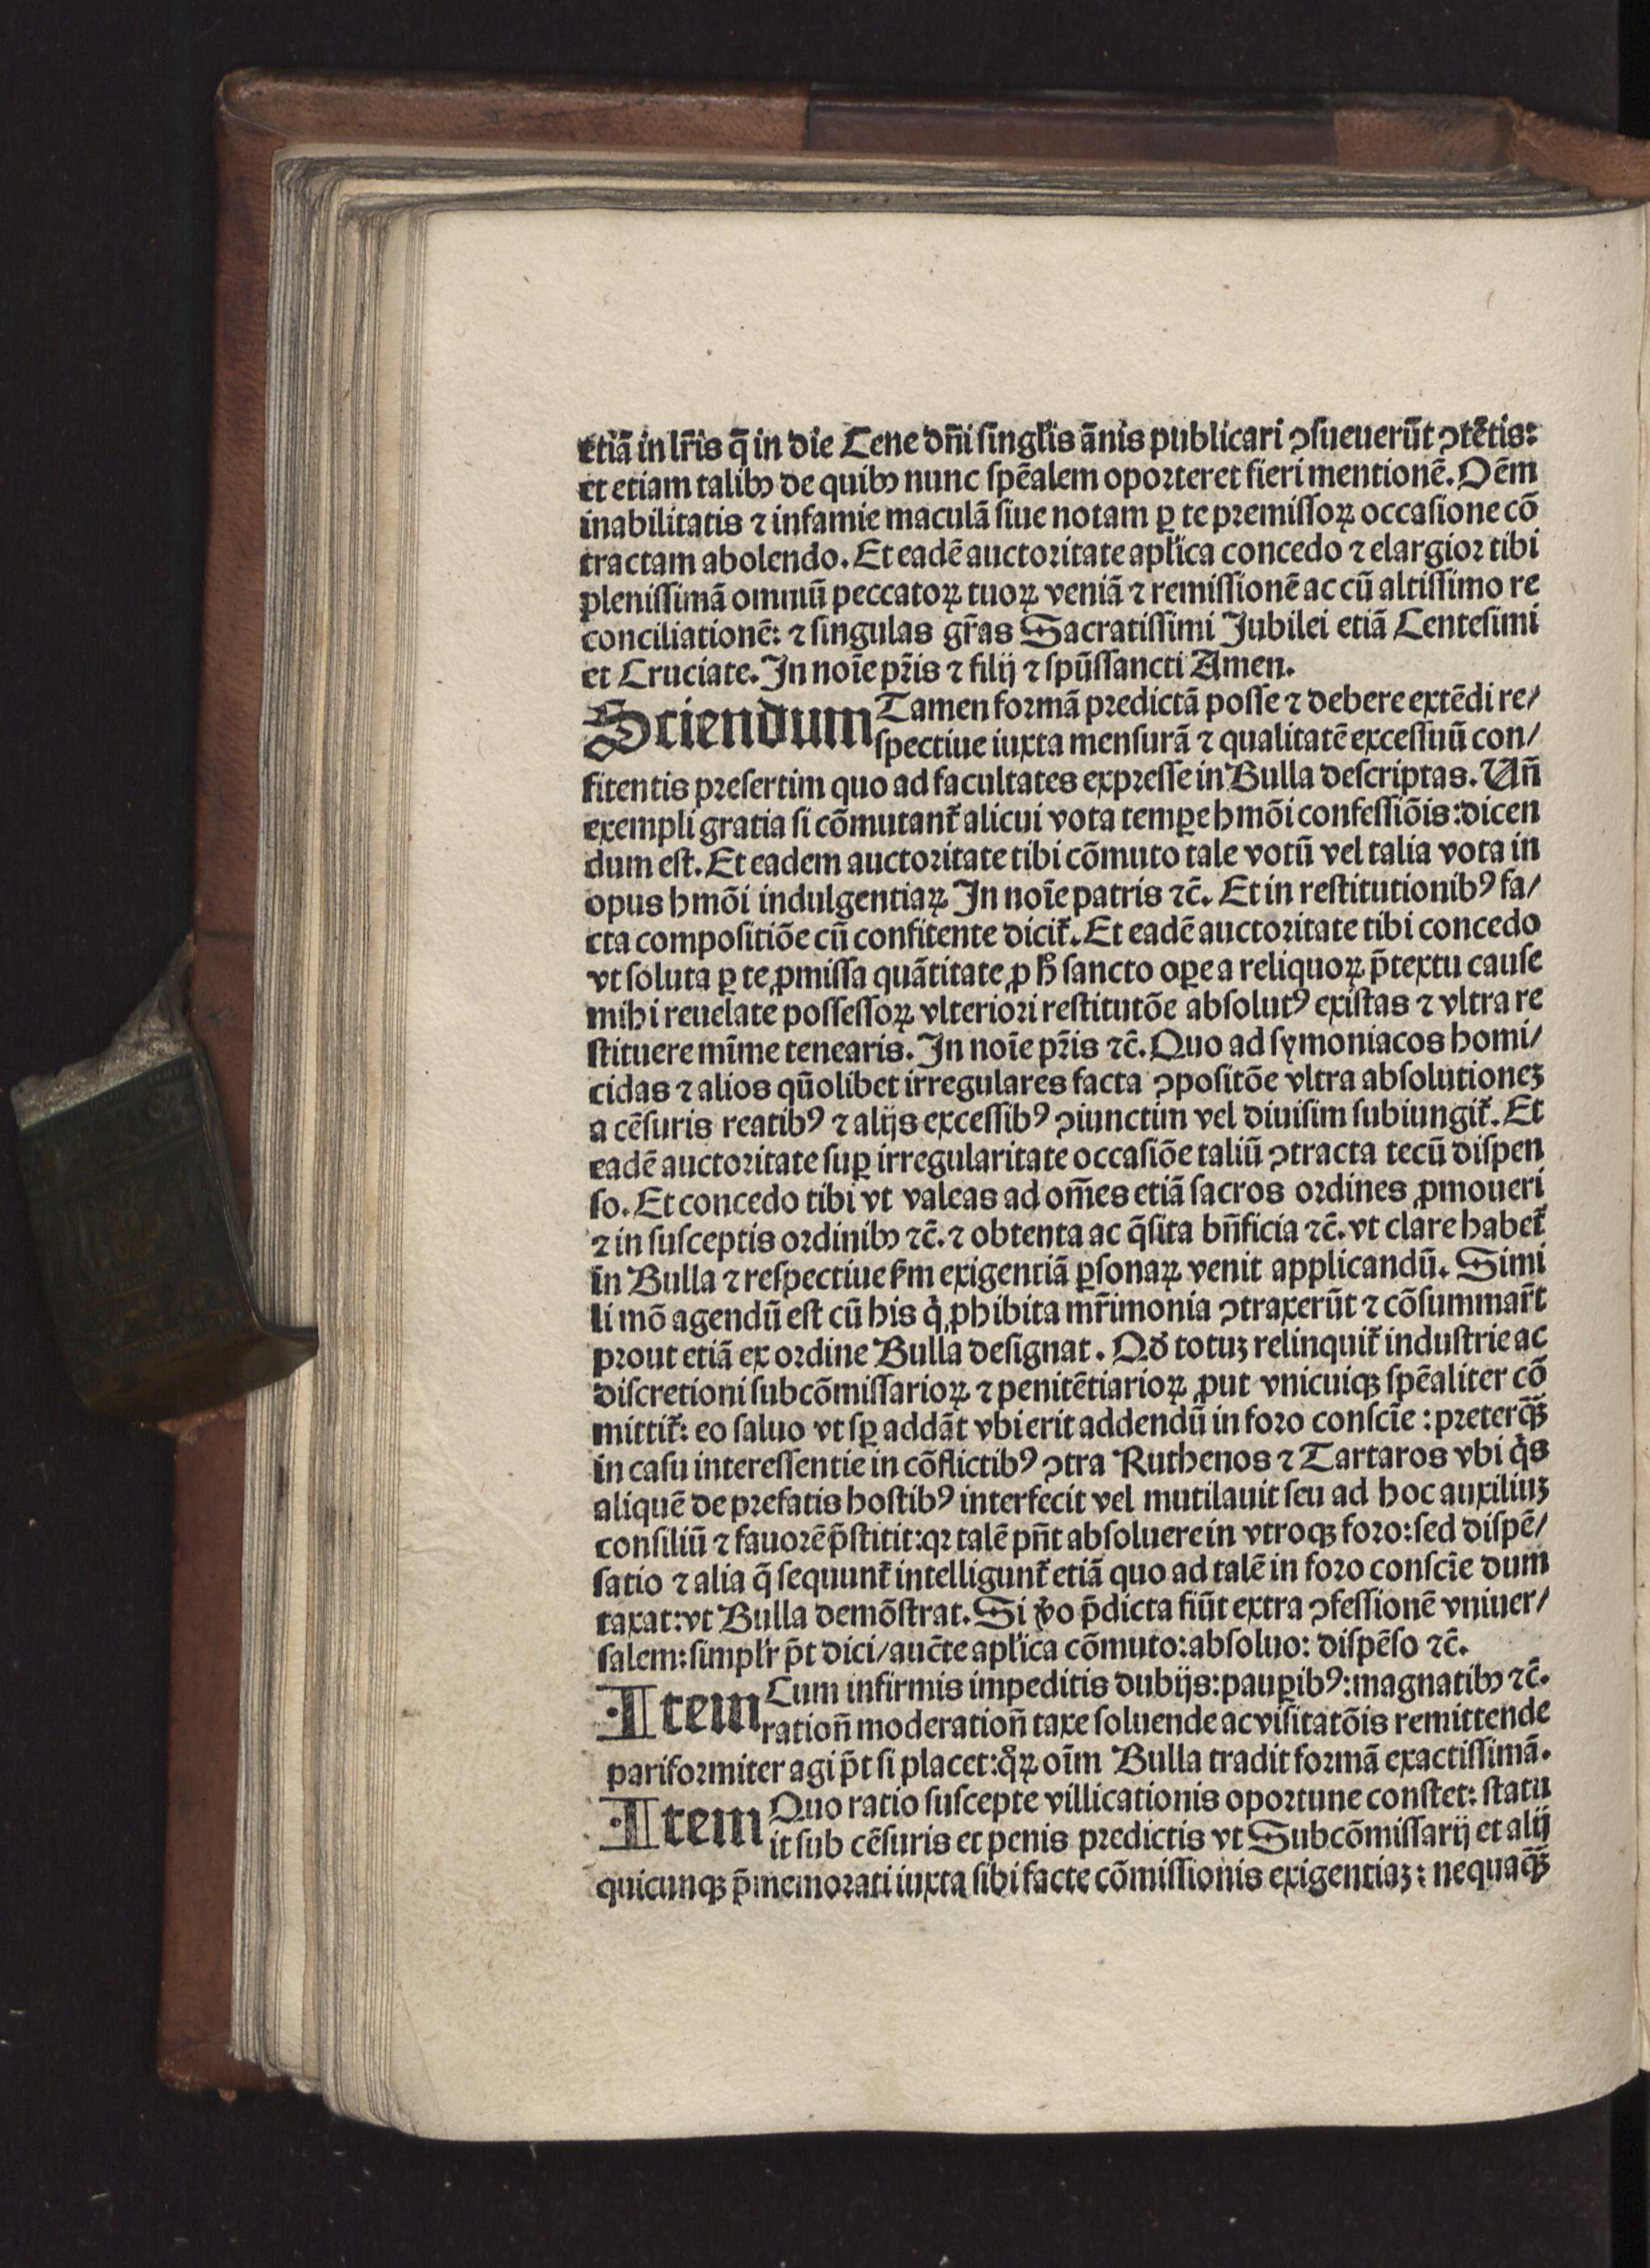 etiā in lr̄is q̄ in die Cene dn̄i singl'is ānis publicari ꝯsueuerūt ꝯtētis:
et etiam talibꝫ de quibꝫ nunc spēalem oporteret fieri mentionē. Oēm
inabilitatis ⁊ infamie maculā siue notam ꝑ te premissoꝝ occasione cō
tractam abolendo. Et eadē auctoritate apl'ica concedo ⁊ elargior tibi
plenissimā omniū peccatoꝝ tuoꝝ veniā ⁊ remissionē ac cū altissimo re
conciliationē: ⁊ singulas gr̄as Sacratissimi Jubilei etiā Centesimi
et Cruciate. In noīe pr̄is ⁊ filij ⁊ spūssancti Amen.
Sciendum Tamen formā predictā posse ⁊ debere extēdi re/
spectiue iuxta mensurā ⁊ qualitatē excessuū con/
fitentis presertim quo ad facultates expresse in Bulla descriptas. Vn̄
exempli gratia si cōmutant̄ alicui vota temꝑe hmōi confessiōis: dicen
dum est. Et eadem auctoritate tibi cōmuto tale votū vel talia vota in
opus hmōi indulgentiaꝝ In noīe patris ⁊c̄. Et in restitutionibꝰ fa/
cta compositiōe cū confitente dicit̄. Et eadē auctoritate tibi concedo
vt soluta ꝑ te ꝓmissa quātitate ꝓ h̄ sancto oꝑe a reliquoꝝ p̄textu cause
mihi reuelate possessoꝝ vlteriori restitutōe absolutꝰ existas ⁊ vltra re
stituere mīme tenearis. In noīe pr̄is ⁊c̄. Quo ad symoniacos homi/
cidas ⁊ alios qūolibet irregulares facta ꝯpositōe vltra absolutioneꝫ
a cēsuris reatibꝰ ⁊ alijs excessibꝰ ꝯiunctim vel diuisim subiungit̄. Et
eadē auctoritate suꝑ irregularitate occasiōe taliū ꝯtracta tecū dispen
so. Et concedo tibi vt valeas ad om̄es etiā sacros ordines ꝓmoueri
⁊ in susceptis ordinibꝫ ⁊c̄. ⁊ obtenta ac q̄sita bn̄ficia ⁊c̄. vt clare habet̄
in Bulla ⁊ respectiue s̄m exigentiā ꝑsonaꝝ venit applicandū. Simi
li mō agendū est cū his q̇ ꝓhibita mr̄imonia ꝯtraxerūt ⁊ cōsummar̄t
prout etiā ex ordine Bulla designat. Qd̄ totuꝫ relinquit̄ industrie ac
discretioni subcōmissarioꝝ ⁊ penitētiarioꝝ ꝓut vnicuiqꝫ spēaliter cō
mittit̄: eo saluo vt sꝑ addāt vbi erit addendū in foro conscīe: preterq̄ꝫ
in casu interessentie in cōflictibꝰ ꝯtra Ruthenos ⁊ Tartaros vbi q̇s
aliquē de prefatis hostibꝰ interfecit vel mutilauit seu ad hoc auxiliuꝫ
consiliū ⁊ fauorē p̄stitit: qꝛ talē pn̄t absoluere in vtroqꝫ foro: sed dispē/
satio ⁊ alia q̄ sequunt̄ intelligunt̄ etiā quo ad talē in foro conscīe dum
taxat: vt Bulla demōstrat. Si v̄o p̄dicta fiūt extra ꝯfessionē vniuer/
salem: simpl'r p̄t dici/ auc̄te apl'ica cōmuto: absoluo: dispēso ⁊c̄.
Item Cum infirmis impeditis dubijs: pauꝑibꝰ: magnatibꝫ ⁊c̄.
ration̄ moderation̄ taxe soluende ac visitatōis remittende
pariformiter agi p̄t si placet: q̊ꝝ oīm Bulla tradit formā exactissimā.
Item Quo ratio suscepte villicationis oportune constet: statu
it sub cēsuris et penis predictis vt Subcōmissarij et alij
quicunqꝫ p̄memorati iuxta sibi facte cōmissionis exigentiaꝫ: nequaq̄ꝫ